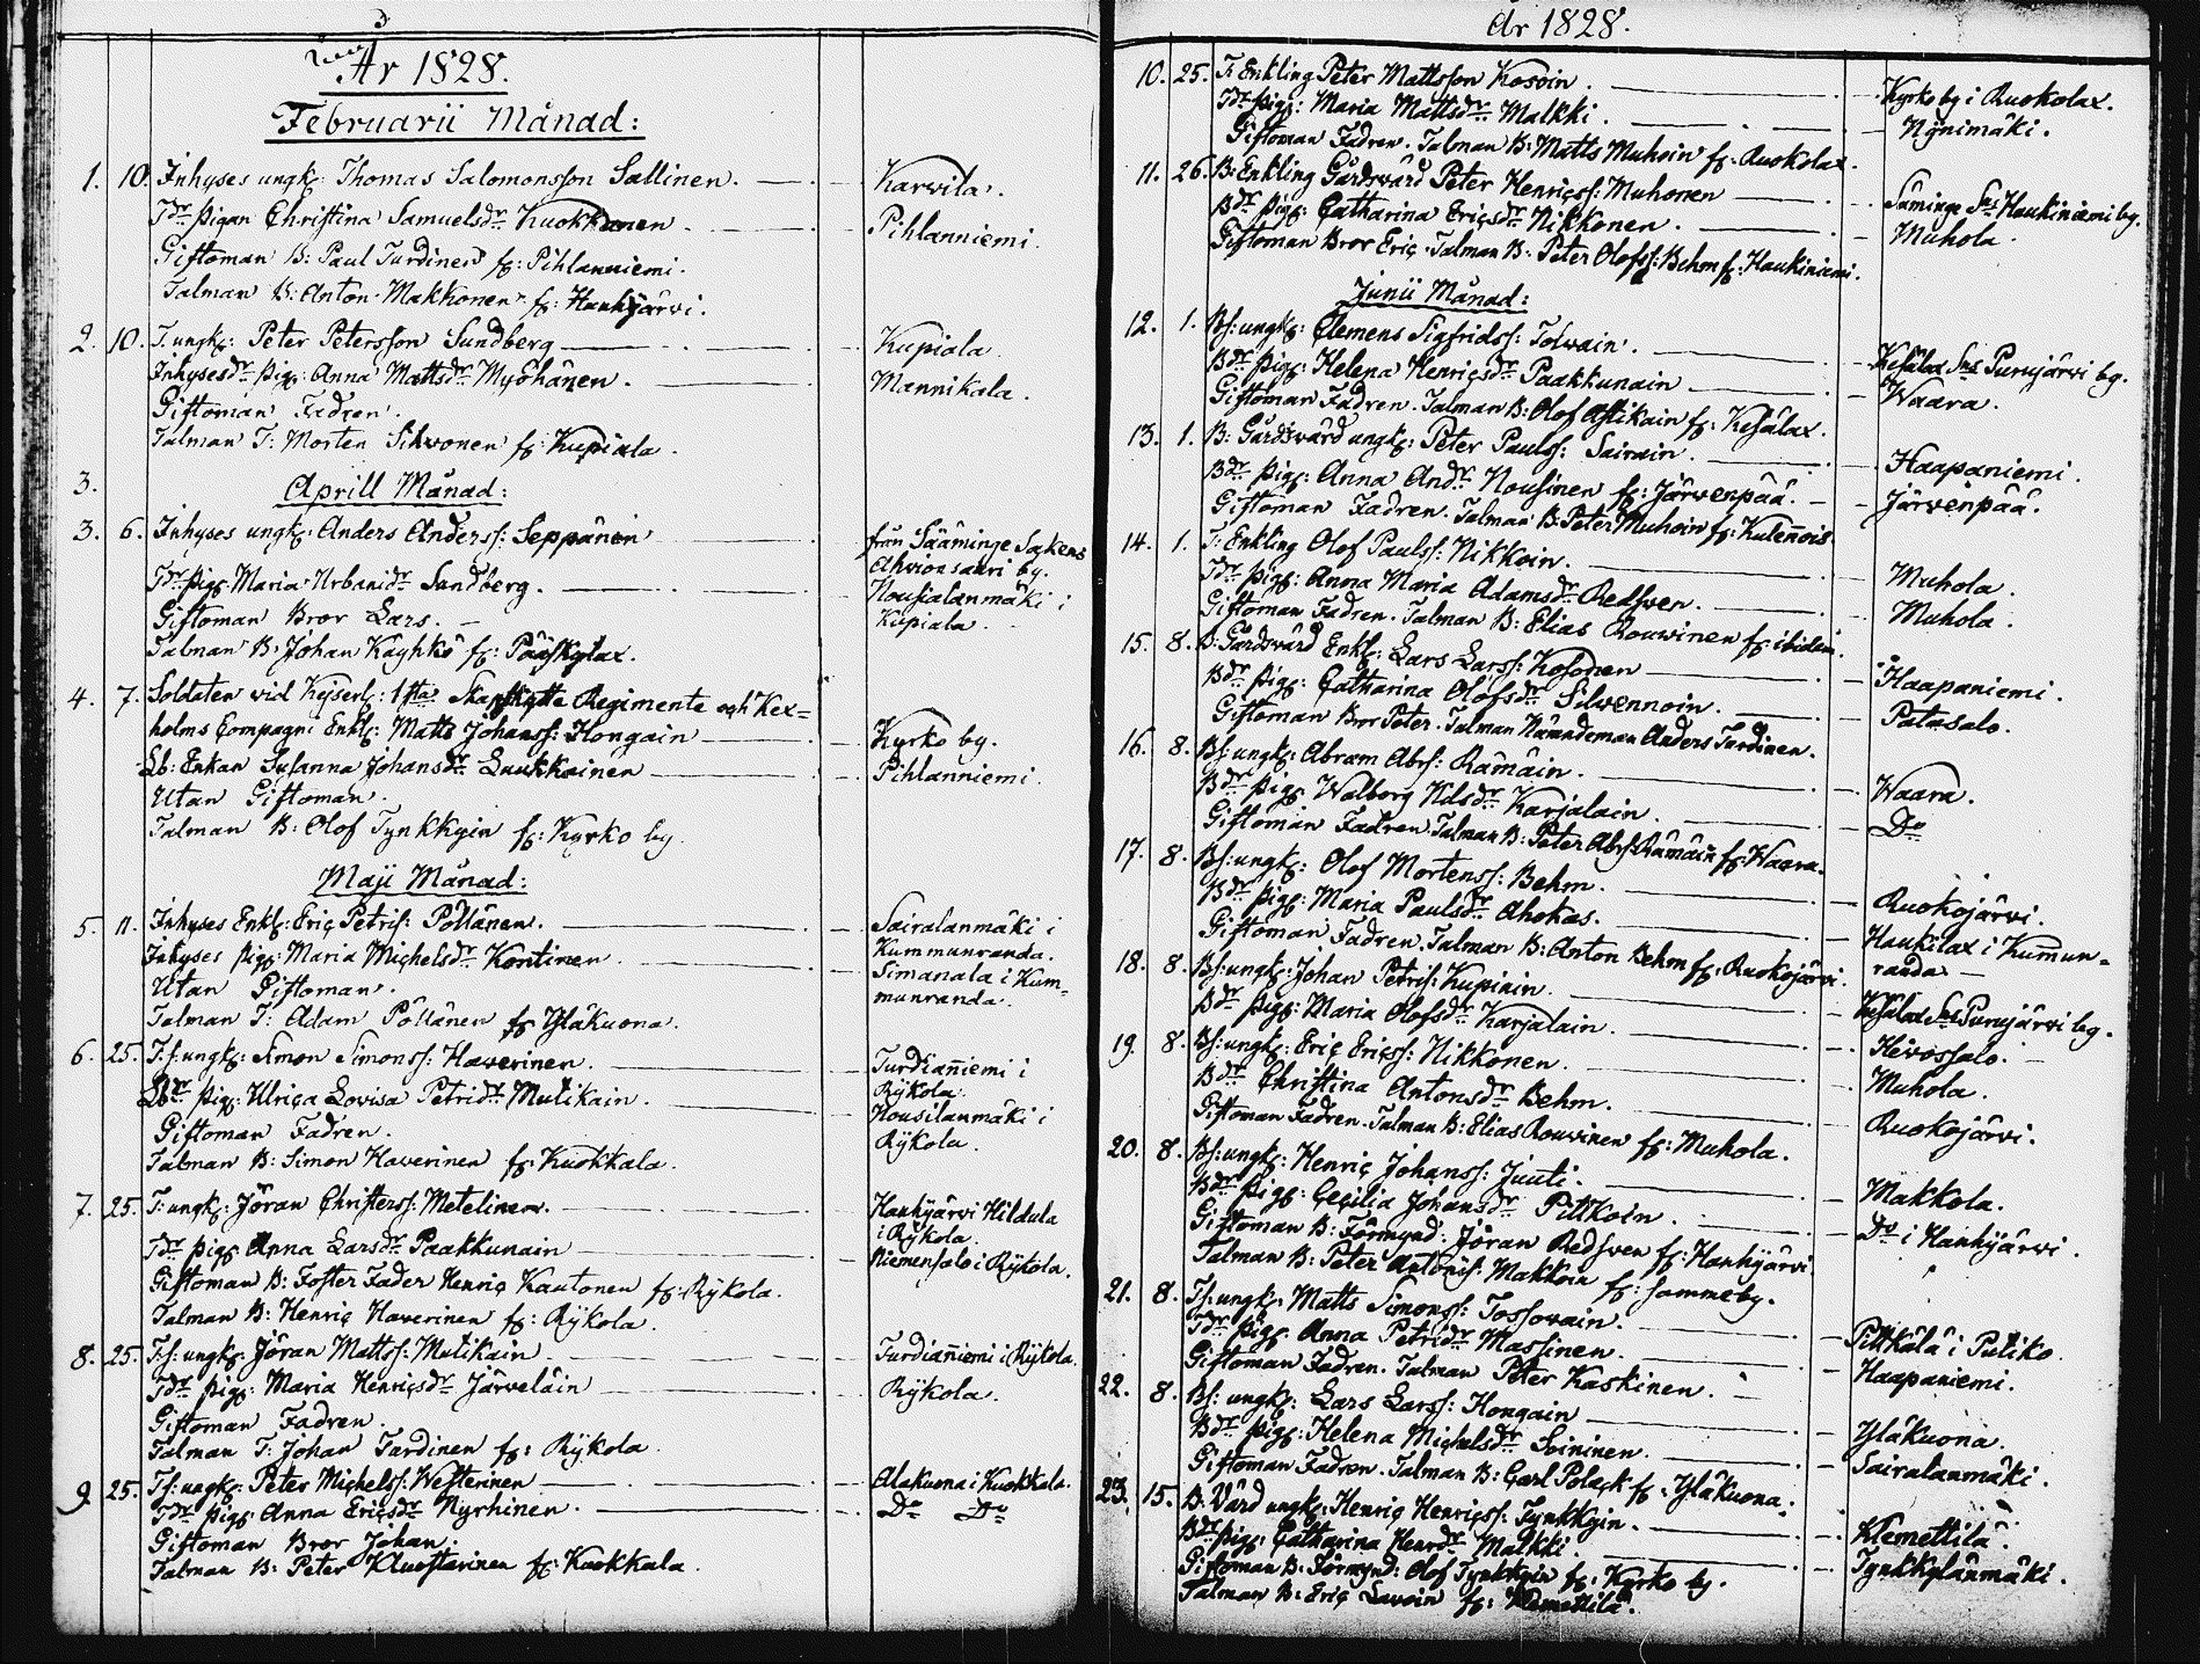 År 1828.
Februarii Månad:
1. 10. Inhyses ungk: Thomas Salomonsson Sallinen. Karvila.
Tdr pigan Christina Samuelsdr Kuokkanen Pihlanniemi.
Giftoman B: Paul Turdinen fr: Pihlanniemi.
Talman B: Anton Makkonen fr: Hanhijärvi.
2. 10. T. ungk: Peter Petersson Sundberg Kupiala.
Inhysesdr pig: Anna Mattsdr Myöhänen. Mannikala.
Giftoman Fadren.
Talman T: Morten Silwonen fr: Kupiala.
3. Aprill Månad:
3. 6. Inhyses ungk: Anders Anderss: Seppänen från Sääminge Sokens
Ahvionsaari by.
Tdr pig: Maria Urbanidr Sundberg. Nousialanmäki i
Giftoman Bror Lars. Kupiala.
Talman B: Johan Käyhkö fr: Pääskylax.
4. 7. Soldaten vid Kejserl: 1sta Skarpskytte Regimente och Kex=
holms Compagni Enkl: Matts Johanss: Hongain Kyrko by.
Lb: Enkan Susanna Johansdr Luukkainen Pihlanniemi.
Utan Giftoman.
Talman B: Olof Tynkkyin fr: Kyrko by.
Maji Månad:
5. 11. Inhyses Enkl: Eric Petris: Pöllänen. Sairalanmäki i
Kummunranda.
Inhyses pig: Maria Michelsdr Kontinen. Simanala i Kum=
Utan Giftoman. munranda.
Talman T: Adam Pöllänen fr Yläkuona.
6. 25. T.s: ungk: Simon Simonss: Haverinen. Turdianniemi i
Rykola.
Lbdr pig: Ulrica Lovisa Petridr Mutikain. Nousilanmäki i
Giftoman Fadren. Rykola.
Talman B: Simon Haverinen fr: Kuokkala.
7. 25. T: ungk: Jöran Christerss: Metelinen. Hanhijärvi Hildula
i Rykola.
Tdr pig: Anna Larsdr Paakkunain Niemensalo i Rykola.
Giftoman B: Foster Fader Henric Kautonen fr: Rykola.
Talman B: Henric Haverinen fr: Rykola.
8. 25. T.s: ungk: Jöran Mattss: Mutikain Turdianniemi i Rykola.
Tdr pig: Maria Henricsdr Järveläin Rykola.
Giftoman Fadren.
Talman T: Johan Turdinen fr: Rykola.
9. 25. Ts: ungk: Peter Michelss: Westerinen Alakuona i Kuokkala.
Tdr pig: Anna Ericsdr Nyrhinen. Do Do
Giftoman Bror Johan.
Talman B: Peter Kluostarinen fr: Kuokkala.
År 1828.
10. 25. T: Enkling Peter Mattsson Kosoin. Kyrko by i Ruokolax.
Tdr pig: Maria Mattsdr Malkki. Nynimäki.
Giftoman Fadren. Talman B: Matts Muhoin fr: Ruokolax.
11. 26. B: Enkling Gårdsvärd Peter Henricss: Muhonen Säminge Sns Haukiniemi by.
Bdr pig: Catharina Ericsdr Nikkonen. Muhola.
Giftoman Bror Eric. Talman B: Peter Olofss: Behm fr: Haukiniemi.
Junii Månad:
12. 1. Bs: ungk: Clemens Sigfridss: Tolvain. Kesälax Sns Purujärvi by.
Bdr pig: Helena Henricsdr Paakkunain Waara.
Giftoman Fadren. Talman B: Olof Astikain fr: Kesälax.
13. 1. B: Gårdsvärd ungk: Peter Paulss: Sairain. Haapaniemi.
Bdr pig: Anna Anddr Nousinen fr: Järvenpää. Järvenpää.
Giftoman Fadren. Talman B: Peter Muhoin fr: Kulennois.
14. 1. T: Enkling Olof Paulss: Nikkoin. Muhola.
Tdr pig: Anna Maria Adamsdr Redsven. Muhola.
Giftoman Fadren. Talman B: Elias Rouvinen fr: ibidem.
15. 8. B: Gårdsvärd Enkl: Lars Larss: Kosonen Haapaniemi.
Bdr pig: Catharina Olofsdr Silvennoin. Patasalo.
Giftoman Bror Peter. Talman Nämndeman Anders Turdinen.
16. 8. Bs: ungk: Abram Abrs: Rämäin. Waara.
Bdr pig: Walborg Nilsdr Karjalain. Do
Giftoman Fadren. Talman B: Peter Abrs: Rämäin fr: Waara.
17. 8. Bs: ungk: Olof Mortenss: Behm. Ruokojärvi.
Bdr pig: Maria Paulsdr Ahokas. Haukilax i Kummun=
Giftoman Fadren. Talman B: Anton Behm fr: Ruokojärvi. randa
18. 8. Bs: ungk: Johan Petris: Kupiain. Kesälax Sns Purujärvi by.
Bdr pig: Maria Olofsdr Karjalain. Hevossalo.
19. 8. Bs: ungk: Eric Ericss: Nikkonen. Muhola.
Bdr Christina Antonsdr Behm. Ruokojärvi.
Giftoman Fadren. Talman B: Elias Rouvinen fr: Muhola.
20. 8. Bs: ungk: Henric Johanss: Juuti. Makkola.
Bdr pig: Cecilia Johansdr Pitkoin. Do i Hanhijärvi.
Giftoman B: Förmynd: Jöran Redsven fr: Hanhijärvi.
Talman B: Peter Antonis: Makkoin fr: samme by.
21. 8. Ts: ungk: Matts Simonss: Tossovain. Pitkälä i Putiko.
Tdr pig: Anna Petridr Massinen. Haapaniemi.
Giftoman Fadren. Talman Peter Kaskinen.
22. 8. Bs: ungk: Lars Larss: Hongain Yläkuona.
Bdr pig: Helena Michelsdr Soininen. Sairalanmäki.
Giftoman Fadren. Talman B: Carl Polack fr: Yläkuona.
23. 15. B: Värd ungk: Henric Henricss: Tynkkyin. Klemettilä.
Bdr pig: Catharina Henrdr Malkki. Tynkkylänmäki.
Giftoman B: Förmynd: Olof Tynkkyin fr: Kyrko by.
Talman B: Eric Lavoin fr: Klemettilä.